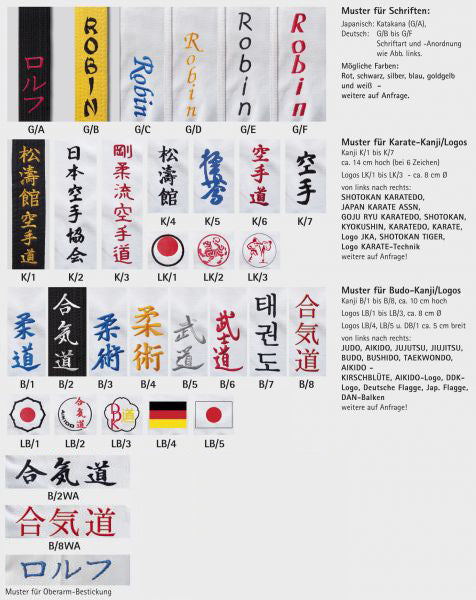 ロルフ
ROBIN
Robin
Robin
Robin
Robin
G/A G/B G/C G/D G/E G/F
Muster für Schriften:
Japanisch: Katakana (G/A),
Deutsch: G/B bis G/F
Schriftart und -Anordnung
wie Abb. links.
Mögliche Farben:
Rot, schwarz, silber, blau, goldgelb
und weiß -
weitere auf Anfrage.
松濤館空手道
日本空手協会
剛柔流空手道
松濤館
空手道
空手
K/4 K/5 K/6 K/7
K/1 K/2 K/3 LK/1 LK/2 LK/3
Muster für Karate-Kanji/Logos
Kanji K/1 bis K/7
ca. 14 cm hoch (bei 6 Zeichen)
Logos LK/1 bis LK/3 - ca. 8 cm Ø
von links nach rechts:
SHOTOKAN KARATEDO,
JAPAN KARATE ASSN,
GOJU RYU KARATEDO, SHOTOKAN,
KYOKUSHIN, KARATEDO, KARATE,
Logo JKA, SHOTOKAN TIGER,
Logo KARATE-Technik
weitere auf Anfrage!
柔道
合気道
柔術
柔術
武道
武士道
태권도
合気道
B/1 B/2 B/3 B/4 B/5 B/6 B/7 B/8
Muster für Budo-Kanji/Logos
Kanji B/1 bis B/8, ca. 10 cm hoch
Logos LB/1 bis LB/3, ca. 8 cm Ø
Logos LB/4, LB/5 u. DB/1 ca. 5 cm breit
von links nach rechts:
JUDO, AIKIDO, JUJUTSU, JIUJITSU,
BUDO, BUSHIDO, TAEKWONDO,
AIKIDO -
KIRSCHBLÜTE, AIKIDO-Logo, DDK-
Logo, Deutsche Flagge, Jap. Flagge,
DAN-Balken
weitere auf Anfrage!
合気道
AIKIDO
LB/1 LB/2 LB/3 LB/4 LB/5
合気道
B/2WA
合気道
B/8WA
ロルフ
Muster für Oberarm-Bestickung